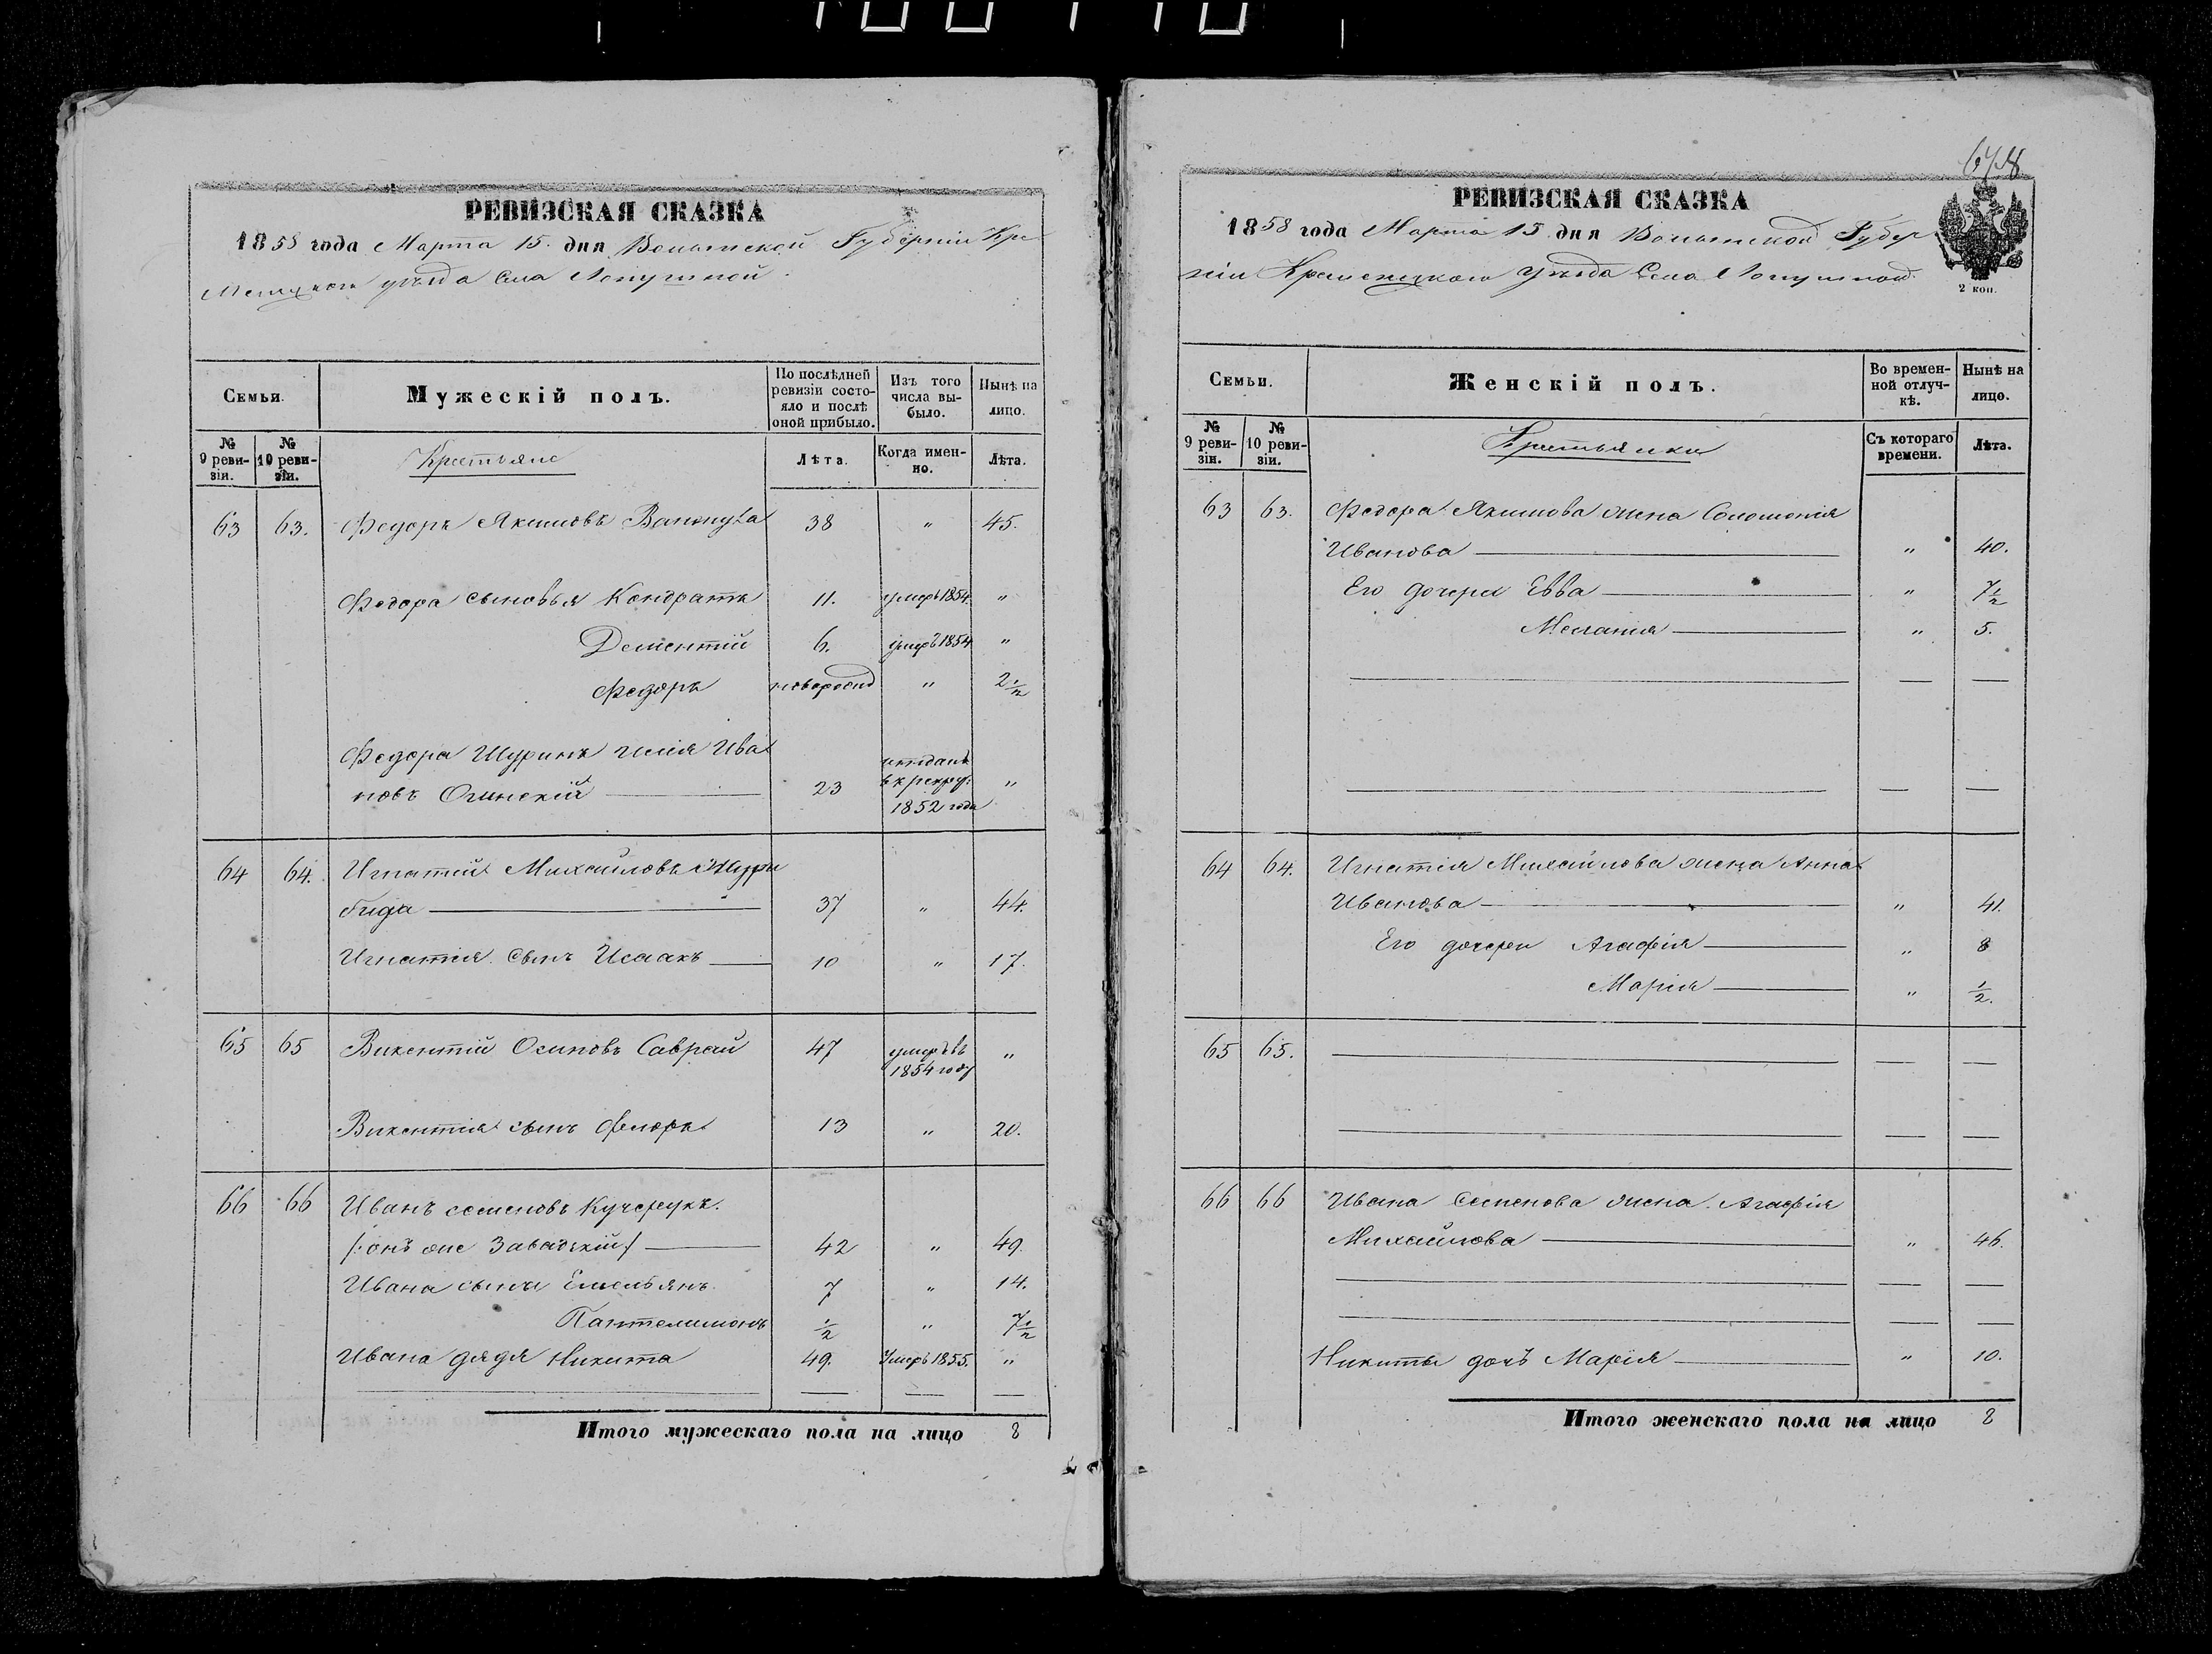 РЕВИЗСКАЯ СКАЗКА
1858 года Марта 15. дня Волынской Губерніи Кре
менецкого уѣзда Села Лопушной.
Семьи. Мужескій полъ. По послѣдней ревизіи состояло и послѣ оной прибыло. Изъ того числа выбыло. Нынѣ на лицо.
№ 9 ревизіи. № 10 ревизіи. Крестьяне Лѣта. Когда именно. Лѣта.
63 63. Федоръ Якимовъ 38 " 45.
Федора сыновья Кондратъ 11. умеръ 1854. "
Дементій 6. умеръ 1854 "
Федоръ новорожд " 2 1/2
Федора Шуринъ Илія Ива
новъ Огинскій 23 отданъ в рекру: 1852 года "
64 64. Игнатій Михайловъ
бида 37 " 44.
Игнатія сынъ Исаакъ 10 " 17.
65 65 Викентій Осиповъ Саврей 47 умеръ въ 1854 году "
Викентія сынъ Флоръ 13 " 20.
66 66 Иванъ Семеновъ Кучерукъ.
/: онъ же Завадзкій :/ 42 " 49.
Ивана сыны Емельянъ 7 " 14.
Пантелимонъ 1/2 " 7 1/2
Ивана дядя Никита 49. Умеръ 1855. "
Итого мужескаго пола на лицо 8
РЕВИЗСКАЯ СКАЗКА
1858 года Марта 15 дня Волынской Губер
ніи Кременецкого Уѣзда Села Лопушной.
2 коп.
Семьи. Женскій полъ. Во временной отлучкѣ. Нынѣ на лицо.
№ 9 ревизіи. № 10 ревизіи. Крестьянки Съ котораго времени. Лѣта.
63 63. Федора Якимова жена Соломонія
Иванова " 40.
Его дочери Евва " 7 1/2
Меланія " 5.
64 64. Игнатія Михайлова жена Анна
Иванова " 41.
Его дочери Агафія " 8
Марія " 1/2.
65 65.
66 66 Ивана Семенова жена Агафія
Михайлова " 46.
Никиты дочь Марія " 10.
Итого женскаго пола на лицо 8